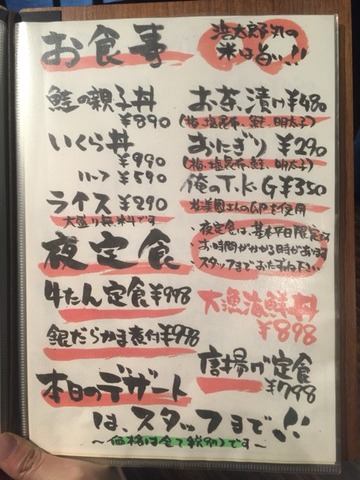 お食事
浩太郎丸の
米は旨い!!
鮭の親子丼
¥890
いくら丼
¥990
ハーフ ¥590
ライス ¥290
大盛り無料です
お茶漬け¥480
(梅、塩昆布、鮭、明太子)
おにぎり ¥290
(梅、塩昆布、鮭、明太子)
俺のT.K.G¥350
を使用
夜定食
・夜定食は、基本平日限定です
・お時間がかかる時があります
スタッフまでおたずね下さい
牛たん定食¥998
銀だらかま煮付¥998
大漁海鮮丼
¥898
唐揚げ定食
¥798
本日のデザート
は、スタッフまで!!
～価格は全て税別です～